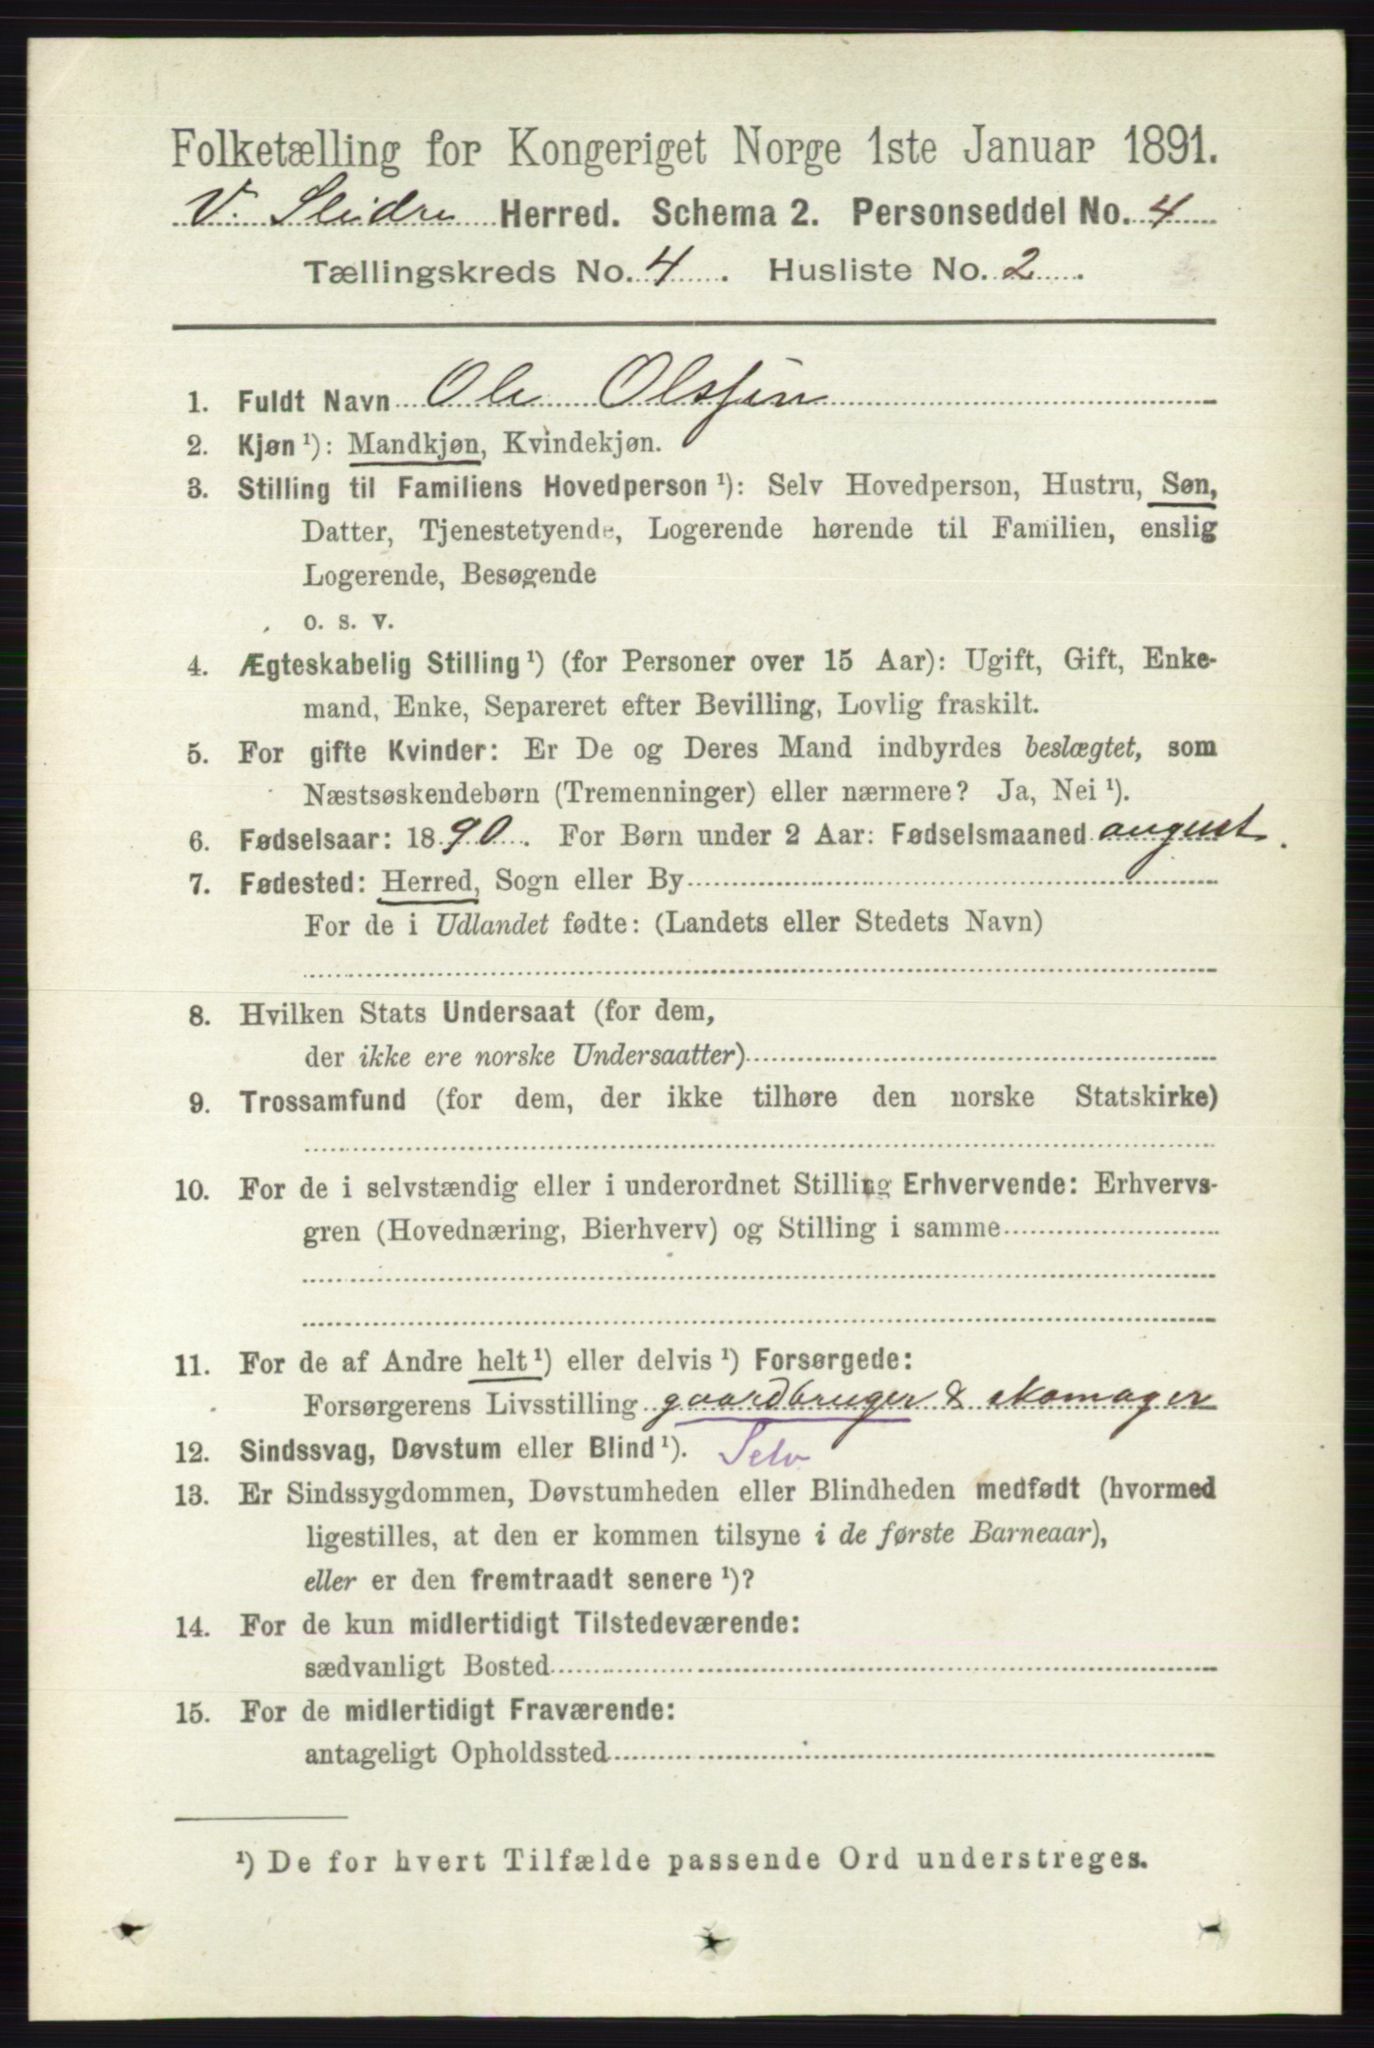 Folketælling for Kongeriget Norge 1ste Januar 1891.
V. Slidre Herred. Schema 2. Personseddel No. 4
Tællingskreds No. 4. Husliste No. 2.
1. Fuldt Navn Ole Olssen
2. Kjøn ¹): Mandkjøn, Kvindekjøn.
3. Stilling til Familiens Hovedperson ¹): Selv Hovedperson, Hustru, Søn,
Datter, Tjenestetyende, Logerende hørende til Familien, enslig
Logerende, Besøgende
o. s. v.
4. Ægteskabelig Stilling ¹) (for Personer over 15 Aar): Ugift, Gift, Enke-
mand, Enke, Separeret efter Bevilling, Lovlig fraskilt.
5. For gifte Kvinder: Er De og Deres Mand indbyrdes beslægtet, som
Næstsøskendebørn (Tremenninger) eller nærmere? Ja, Nei ¹).
6. Fødselsaar: 1890. For Børn under 2 Aar: Fødselsmaaned august.
7. Fødested: Herred, Sogn eller By
For de i Udlandet fødte: (Landets eller Stedets Navn)
8. Hvilken Stats Undersaat (for dem,
der ikke ere norske Undersaatter)
9. Trossamfund (for dem, der ikke tilhøre den norske Statskirke)
10. For de i selvstændig eller i underordnet Stilling Erhvervende: Erhvervs-
gren (Hovednæring, Bierhverv) og Stilling i samme
11. For de af Andre helt ¹) eller delvis ¹) Forsørgede:
Forsørgerens Livsstilling gaardbruger & skomager
12. Sindssvag, Døvstum eller Blind ¹). Selv
13. Er Sindssygdommen, Døvstumheden eller Blindheden medfødt (hvormed
ligestilles, at den er kommen tilsyne i de første Barneaar),
eller er den fremtraadt senere ¹)?
14. For de kun midlertidigt Tilstedeværende:
sædvanligt Bosted
15. For de midlertidigt Fraværende:
antageligt Opholdssted
¹) De for hvert Tilfælde passende Ord understreges.